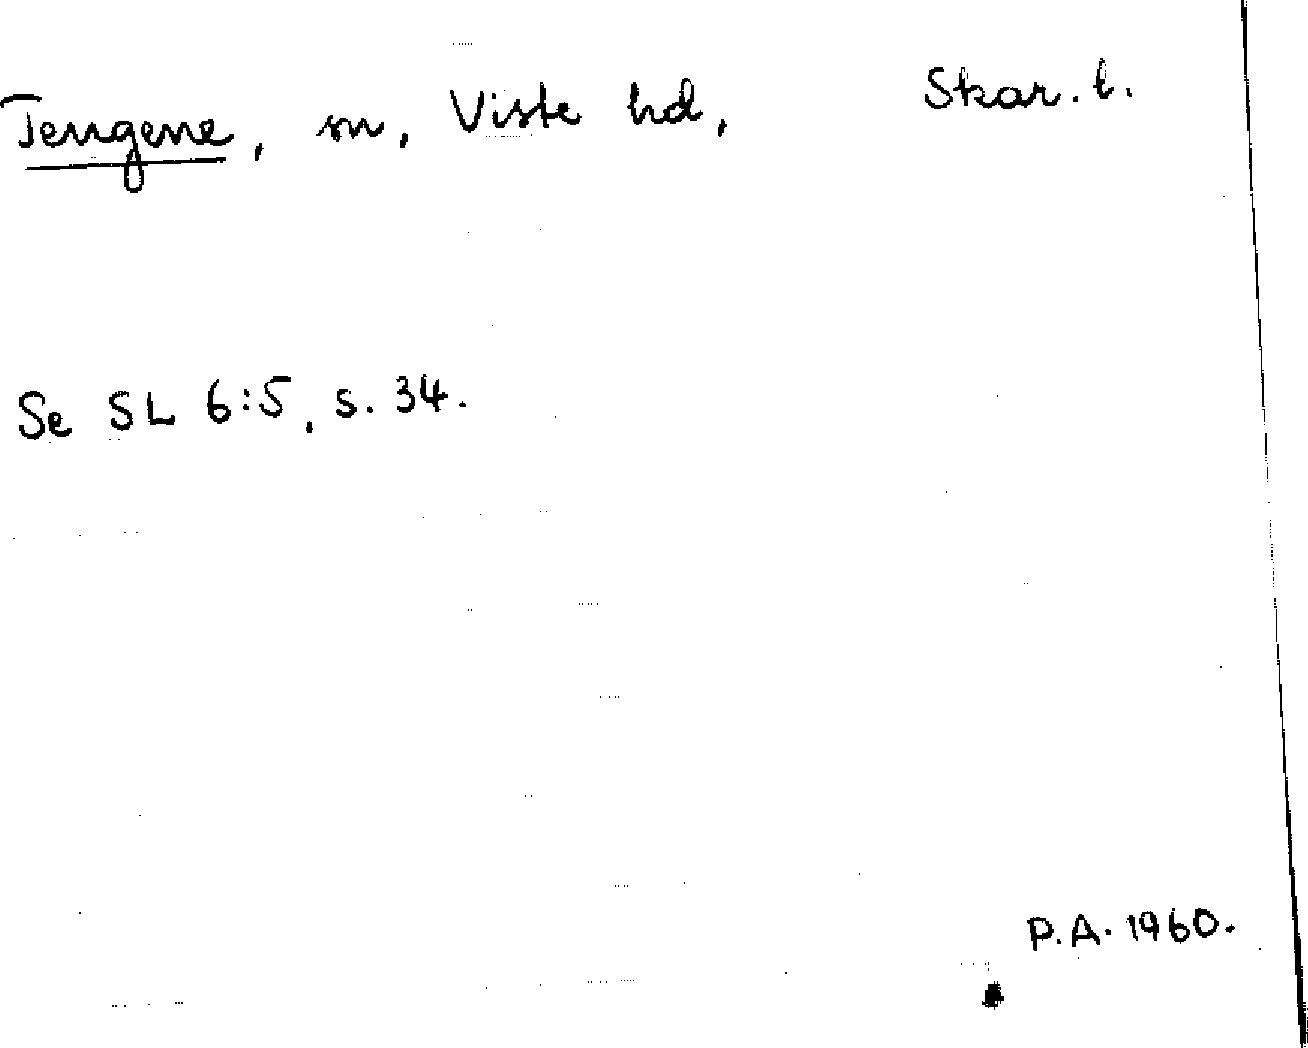 Tengene, sn, Viste hd, Skar. l.
Se SL 6:5, s. 34.
P.A. 1960.